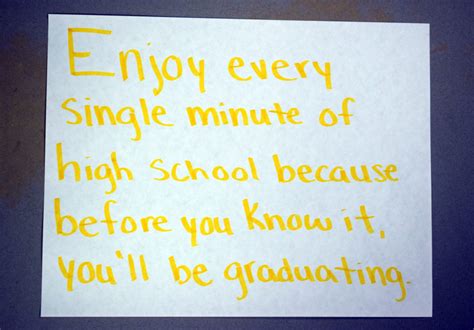 Enjoy every
single minute of
high school because
before you know it,
you'll be graduating.